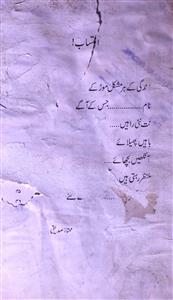 انتساب!
زندگی کے ہر مشکل موڑ کے
نام ............ جس کے آگے
نت نئی راہیں ....
باہیں پھیلائے
آنکھیں بچھائے ....
منتظر رہتی ہیں
.... لئے